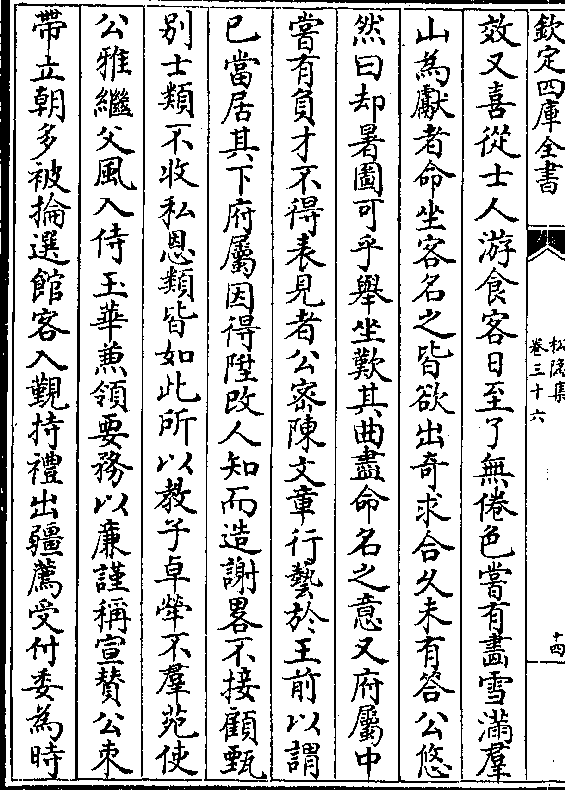 欽定四庫全書
松隱集
卷三十六
十四
效又喜從士人游食客日至了無倦色嘗有畫雪滿羣
山為獻者命坐客名之皆欲出奇求合久未有答公悠
然曰却暑圖可乎舉坐歎其曲盡命名之意又府屬中
嘗有負才不得表見者公密陳文章行藝於王前以謂
已當居其下府屬因得陞改人知而造謝畧不接顧甄
别士類不收私恩類皆如此所以教子卓犖不羣苑使
公雅繼父風入侍玉華兼領要務以廉謹稱宣贊公朿
帶立朝多被掄選館客入覲持禮出疆薦受付委為時